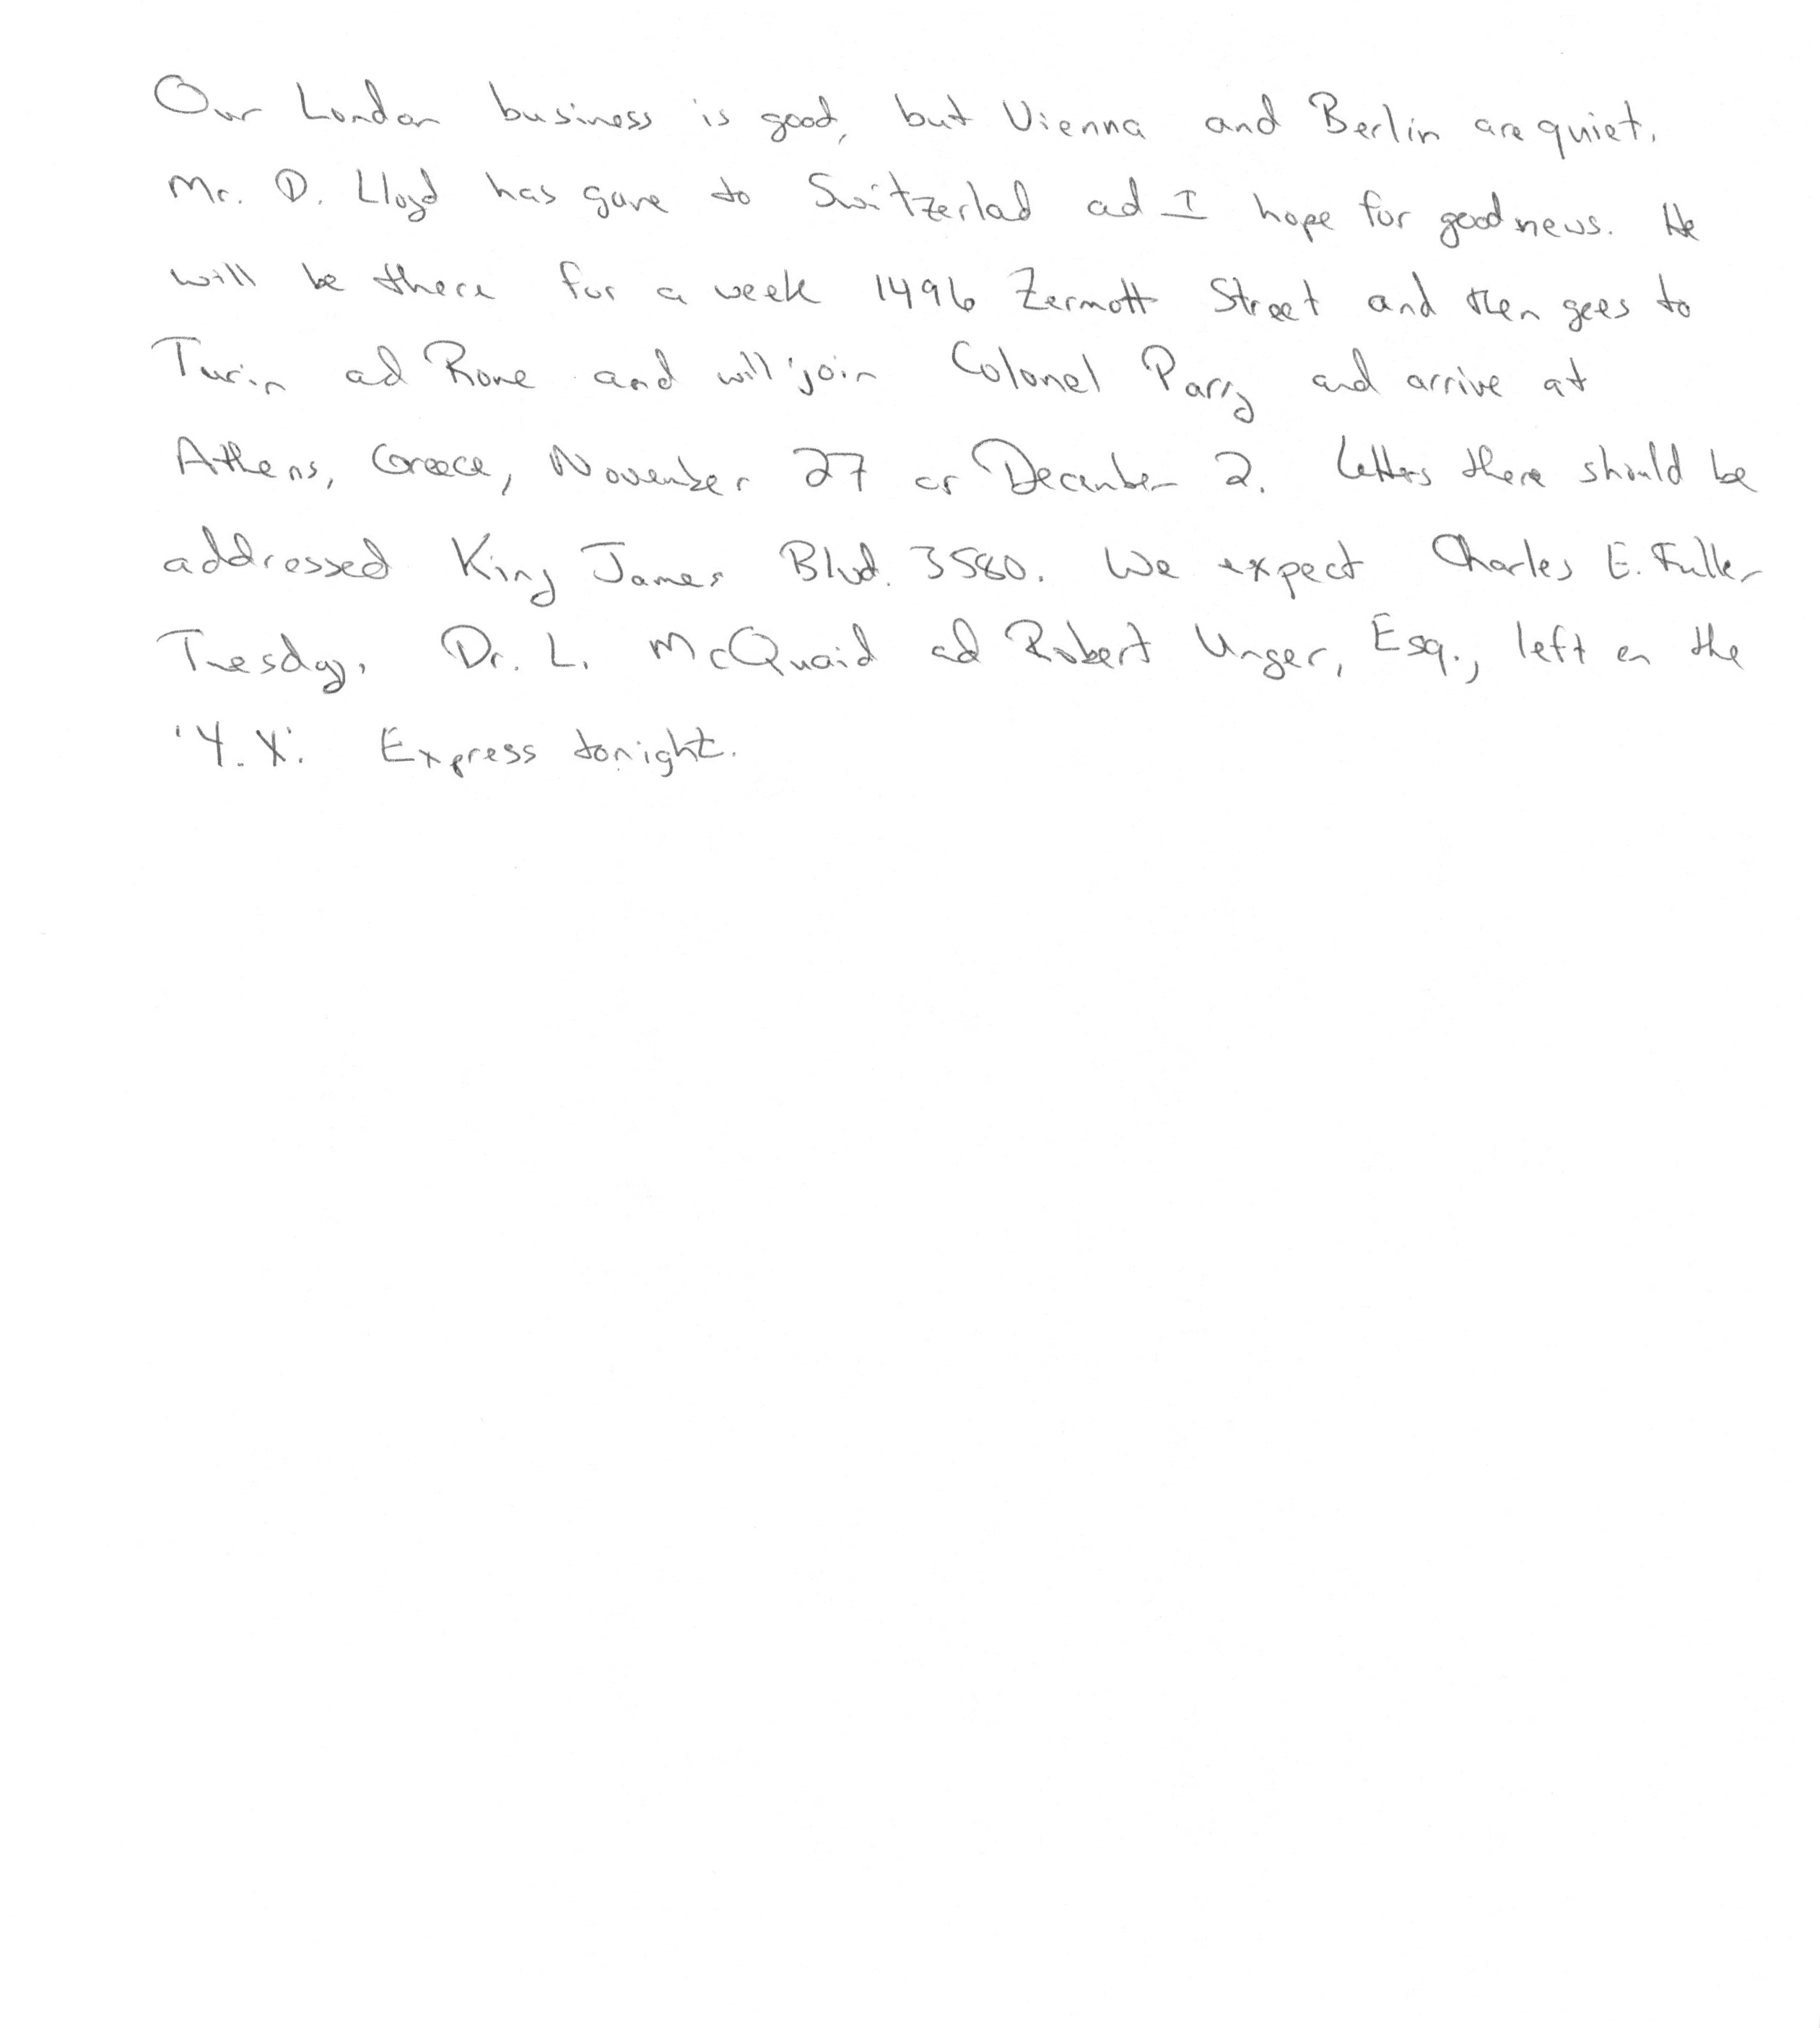 Our London business is good, but Vienna and Berlin are quiet.
Mr. D. Lloyd has gone to Switzerlad ad I hope for good news. He
will be there for a week 1496 Zermott Street and then goes to
Turin ad Rome and will join Colonel Parry and arrive at
Athens, Greece, November 27 or December 2. Letters there should be
addressed King James Blvd. 3580. We expect Charles E. Fuller
Tuesday. Dr. L. McQuaid ad Robert Unger, Esq., left on the
'Y.X.' Express tonight.